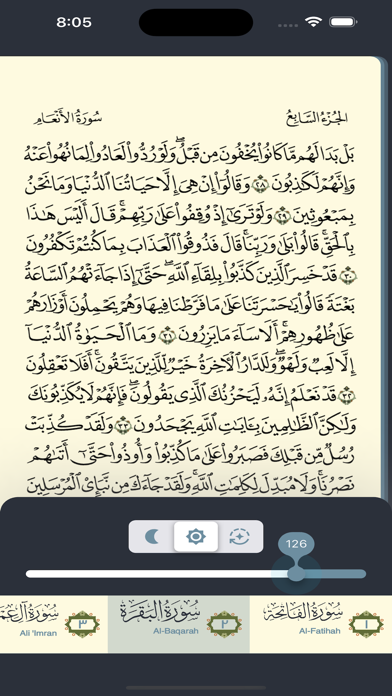 8:05
الجزء السابع
سورة الأنعام
بَلْ بَدَا لَهُم مَّا كَانُوا۟ يُخْفُونَ مِن قَبْلُ ۖ وَلَوْ رُدُّوا۟ لَعَادُوا۟ لِمَا نُهُوا۟ عَنْهُ
وَإِنَّهُمْ لَكَٰذِبُونَ ٢٨ وَقَالُوٓا۟ إِنْ هِىَ إِلَّا حَيَاتُنَا ٱلدُّنْيَا وَمَا نَحْنُ
بِمَبْعُوثِينَ ٢٩ وَلَوْ تَرَىٰٓ إِذْ وُقِفُوا۟ عَلَىٰ رَبِّهِمْ ۚ قَالَ أَلَيْسَ هَٰذَا
بِٱلْحَقِّ ۚ قَالُوا۟ بَلَىٰ وَرَبِّنَا ۚ قَالَ فَذُوقُوا۟ ٱلْعَذَابَ بِمَا كُنتُمْ تَكْفُرُونَ
٣٠ قَدْ خَسِرَ ٱلَّذِينَ كَذَّبُوا۟ بِلِقَآءِ ٱللَّهِ ۖ حَتَّىٰٓ إِذَا جَآءَتْهُمُ ٱلسَّاعَةُ
بَغْتَةً قَالُوا۟ يَٰحَسْرَتَنَا عَلَىٰ مَا فَرَّطْنَا فِيهَا وَهُمْ يَحْمِلُونَ أَوْزَارَهُمْ
عَلَىٰ ظُهُورِهِمْ ۚ أَلَا سَآءَ مَا يَزِرُونَ ٣١ وَمَا ٱلْحَيَوٰةُ ٱلدُّنْيَآ
إِلَّا لَعِبٌ وَلَهْوٌ ۖ وَلَلدَّارُ ٱلْءَاخِرَةُ خَيْرٌ لِّلَّذِينَ يَتَّقُونَ ۗ أَفَلَا تَعْقِلُونَ
٣٢ قَدْ نَعْلَمُ إِنَّهُۥ لَيَحْزُنُكَ ٱلَّذِى يَقُولُونَ ۖ فَإِنَّهُمْ لَا يُكَذِّبُونَكَ
وَلَٰكِنَّ ٱلظَّٰلِمِينَ بِـَٔايَٰتِ ٱللَّهِ يَجْحَدُونَ ٣٣ وَلَقَدْ كُذِّبَتْ
رُسُلٌ مِّن قَبْلِكَ فَصَبَرُوا۟ عَلَىٰ مَا كُذِّبُوا۟ وَأُوذُوا۟ حَتَّىٰٓ أَتَىٰهُمْ
نَصْرُنَا ۚ وَلَا مُبَدِّلَ لِكَلِمَٰتِ ٱللَّهِ ۚ وَلَقَدْ جَآءَكَ مِن نَّبَإِى۟ ٱلْمُرْسَلِينَ
126
سورة الفاتحة ١
Al-Fatihah
سورة البقرة ٢
Al-Baqarah
سورة آل عم ٣
Ali 'Imran